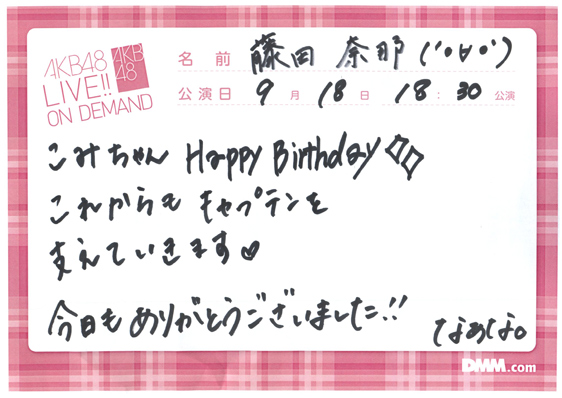 AKB48
LIVE!!
ON DEMAND
AKB
48
名前 藤田奈那(('●∀●'))
公演日 9月18日 18:30公演
こみちゃん Happy Birthday
これからもキャプテンを
支えていきます♡
今日もありがとうございました!!
なぁな。
DMM.com